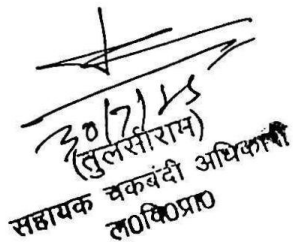 30/7/25
(तुलसीराम)
सहायक चकबंदी अधिकारी
ल०वि०प्रा०